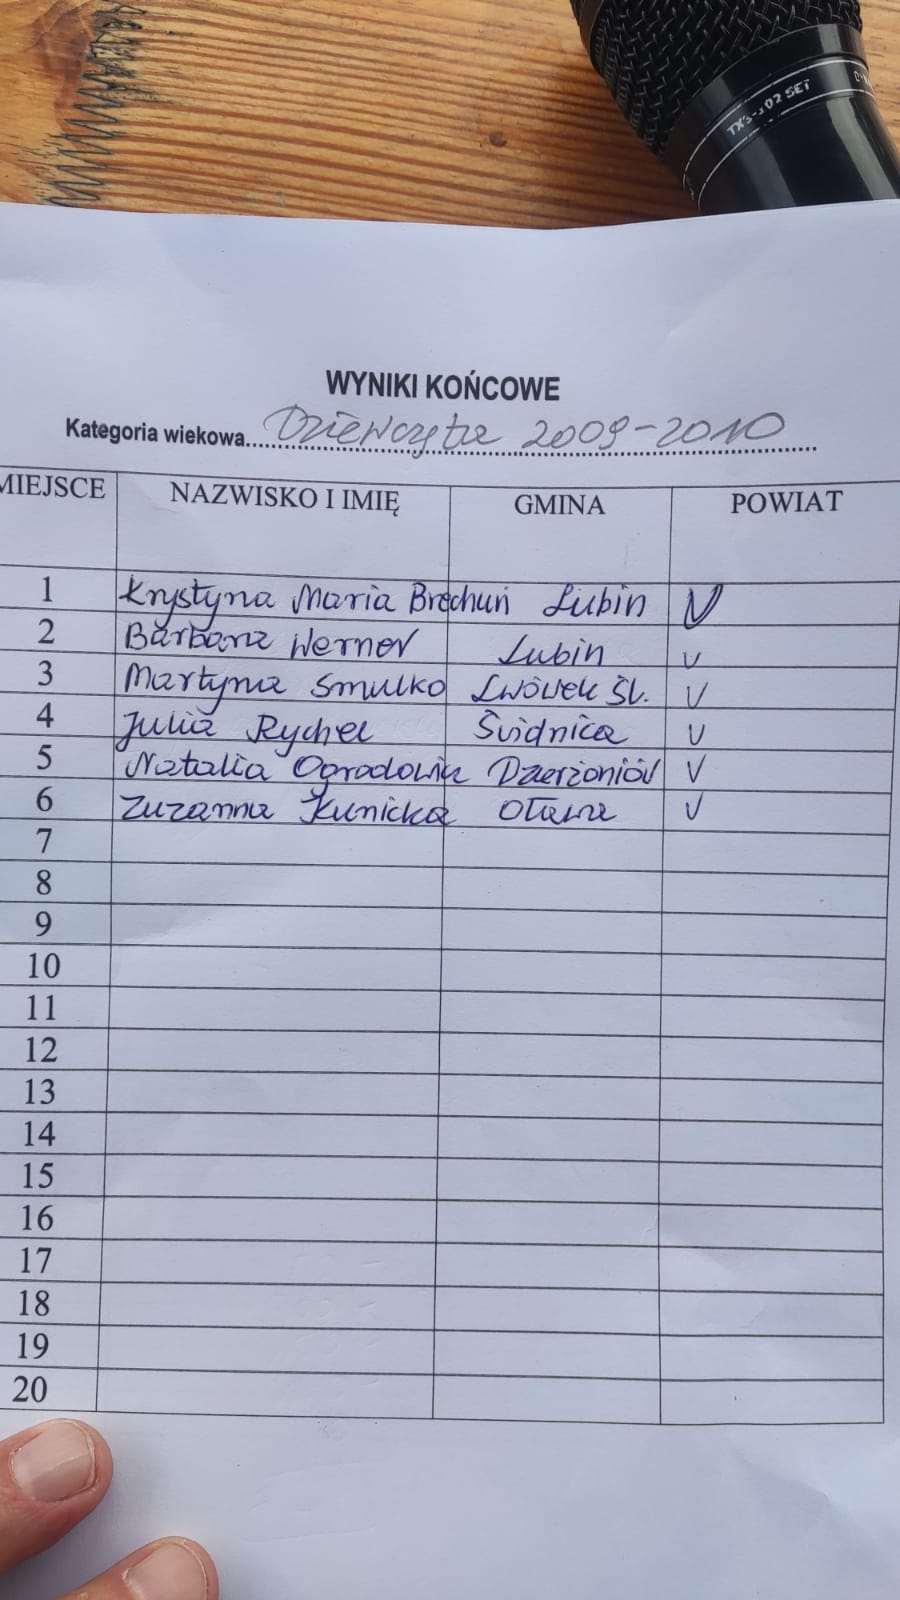 TXS-302 SET
WYNIKI KOŃCOWE
Kategoria wiekowa Dziewczęta 2009-2010
MIEJSCE NAZWISKO I IMIĘ GMINA POWIAT
1 Krystyna Maria Brechuń Lubin V
2 Barbara Werner Lubin V
3 Martyna Smulko Lwówek Śl. V
4 Julia Rychel Świdnica V
5 Natalia Ogrodowicz Dzierżoniów V
6 Zuzanna Kunicka Oława V
7
8
9
10
11
12
13
14
15
16
17
18
19
20